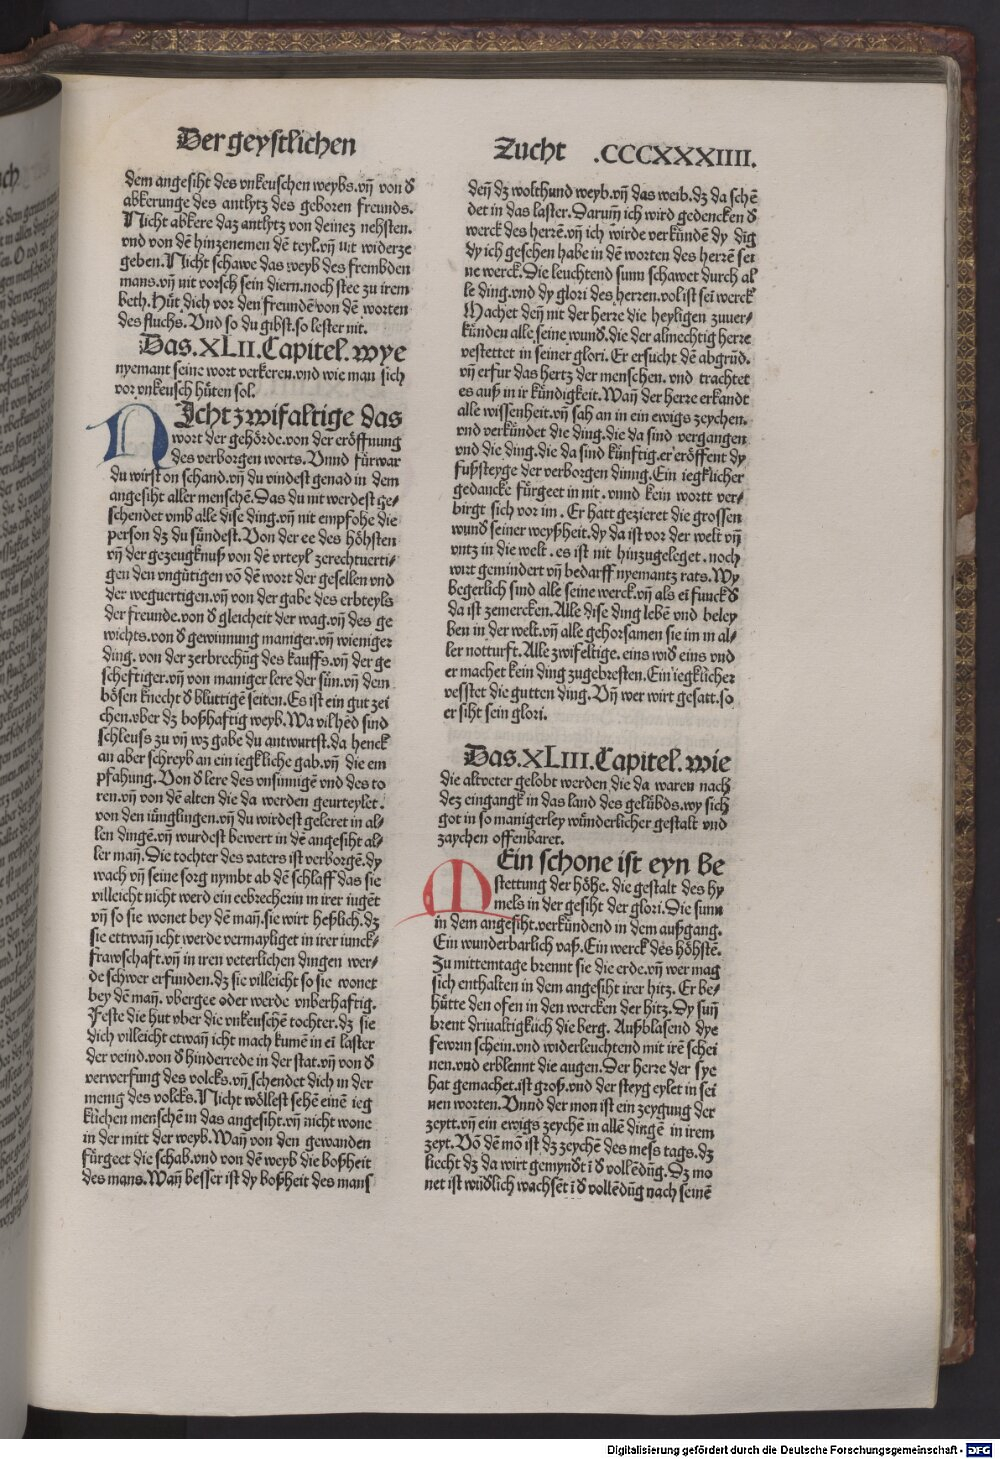 Der geystlichen
Zucht .CCCXXXIIII.
dem angesiht des vnkeuschen weybs.vñ von d̕
abkerunge des antlytz des geboren freunds.
Nicht abkere daz antlytz von deinez nehsten.
vnd von dē hinzenemen dē teyl.vñ nit widerze
geben.Nicht schawe das weyb des frembden
mans.vñ nit vorsch sein diern.noch stee zu irem
beth.Hüt dich vor den freundē von dē worten
des fluchs.Vnd so du gibst.so lester nit.
Das.XLII.Capitel.wye
nyemant seine wort verkeren.vnd wie man sich
vor vnkeusch hüten sol.
NIcht zwifaltige das
wort der gehörde.von der eröffnung
des verborgen worts.Vnnd fürwar
du wirst on schand.vñ du vindest genad in dem
angesiht aller menschē.Das du nit werdest ge⸗
schendet vmb alle dise ding.vñ nit empfohe die
person dz du sündest.Von der ee des höhsten
vñ der gezeugknuß von dē vrteyl zerechtuerti⸗
gen den vngütigen vō dē wort der gesellen vnd
der weguertigen.vñ von der gabe des erbteyls
der freunde.von d̕ gleicheit der wag.vñ des ge
wichts.von d̕ gewinnung maniger.vñ wieniger
ding.von der zerbrechūg des kauffs.vñ der ge
scheftiger.vñ von maniger lere der sün.vñ dem
bösen knecht d̕ bluttigē seiten.Es ist ein gut zei
chen.vber dz boßhaftig weyb.Wa vil hēd sind
schleuss zu vñ wz gabe du antwurtst.da henck
an aber schreyb an ein iegkliche gab.vñ die em
pfahung.Von d̕ lere des vnsinnigē vnd des to
ren.vñ von dē alten die da werden geurteylet.
von den iünglingen.vñ du wirdest geleret in al⸗
len dingē.vñ wurdest bewert in dē angesiht al⸗
ler mañ.Die tochter des vaters ist verborgē.dy
wach vñ seine sorg nymbt ab dē schlaff das sie
villeicht nicht werd ein eebrecherin in irer iugēt
vñ so sie wonet bey dē mañ.sie wirt heßlich.dz
sie ettwañ icht werde vermayliget in irer iunck⸗
frawschaft.vñ in iren veterlichen dingen wer⸗
de schwer erfunden.dz sie villeicht so sie wonet
bey dē mañ.vbergee oder werde vnberhaftig.
Feste die hut vber die vnkeuschē tochter.dz sie
dich villeicht etwañ icht mach kumē in ei laster
der veind.von d̕ hinderrede in der stat.vñ von d̕
verwerfung des volcks.vñ schendet dich in der
menig des volcks.Nicht wöllest sehē einē ieg
klichen menschē in das angesiht.vñ nicht wone
in der mitt der weyb.Wañ von den gewanden
fürgeet die schab.vnd von dē weyb die boßheit
des mans.Wañ besser ist dy boßheit des mans
deñ dz wolthund weyb.vñ das weib.dz da schē
det in das laster.Darum̄ ich wird gedencken d̕
werck des herrē.vñ ich wirde verkündē dy dīg
dy ich gesehen habe in dē worten des herrē sei
ne werck.Die leuchtend sunn schawet durch al
le ding.vnd dy glori des herren.vol ist sei werck
Machet deñ nit der herre die heyligen zuuer⸗
künden alle seine wund̕.die der almechtig herre
vestettet in seiner glori.Er ersucht dē abgrūd.
vñ erfur das hertz der menschen.vnd trachtet
es auß in ir kündigkeit.Wañ der herre erkandt
alle wissenheit.vñ sah an in ein ewigs zeychen.
vnd verkündet die ding.die da sind vergangen
vnd die ding.die da sind künftig.er eröffent dy
fußsteyge der verborgen dinng.Ein iegklicher
gedancke fürgeet in nit.vnnd kein wortt ver⸗
birgt sich vor im.Er hatt gezieret die grossen
wund̕ seiner weyßheit.dy da ist vor der welt vñ
vntz in die welt.es ist nit hinzugeleget.noch
wirt gemindert vñ bedarff nyemantz rats.Wy
begerlich sind alle seine werck.vñ als ei funck d̕
da ist zemercken.Alle dise ding lebē vnd beley
ben in der welt.vñ alle gehorsamen sie im in al⸗
ler notturft.Alle zwifeltige.eins wid̕ eins vnd
er machet kein ding zugebresten.Ein iegklicher
vesstet die gutten ding.Vñ wer wirt gesatt.so
er siht sein glori.
Das.XLIII.Capitel.wie
die altveter gelobt werden die da waren nach
dez eingangk in das land des gelübds.wy sich
got in so manigerley wünderlicher gestalt vnd
zaychen offenbaret.
MEin schone ist eyn be
stettung der höhe.die gestalt des hy
mels in der gesiht der glori.Die sunn
in dem angesiht.verkündend in dem außgang.
Ein wunderbarlich vaß.Ein werck des höhstē.
Zu mittemtage brennt sie die erde.vñ wer mag
sich enthalten in dem angesiht irer hitz.Er be⸗
hütte den ofen in den wercken der hitz.Dy suñ
brent driualtigklich die berg.Außblasend dye
fewrin schein.vnd widerleuchtend mit irē schei
nen.vnd erblennt die augen.Der herre der sye
hat gemachet.ist groß.vnd der steyg eylet in sei
nen worten.Vnnd der mon ist ein zeygung der
zeytt.vñ ein ewigs zeychē in allē dingē in irem
zeyt.Vō dē mō ist dz zeychē des mess tags.dz
liecht dz da wirt gemyndt ī d̕ vollēdūg.Dz mo
net ist wūdlich wachsēt ī d̕ vollēdūg nach seinē
Digitalisierung gefördert durch die Deutsche Forschungsgemeinschaft - DFG